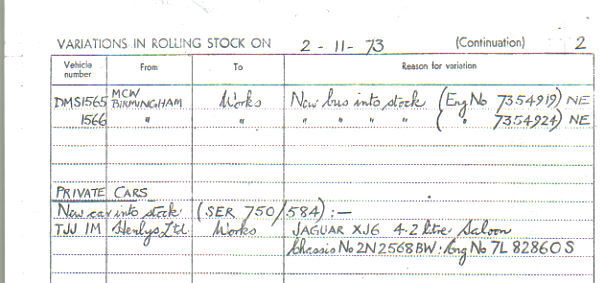 VARIATIONS IN ROLLING STOCK ON 2 - 11 - 73 (Continuation) 2
Vehicle number From To Reason for variation
DMS1565 MCW BIRMINGHAM Works New bus into stock (Eng No 7354919) NE
1566 " " " " " " (" 7354924) NE
PRIVATE CARS
New car into stock (SER 750/584) :—
TJJ 1M Henlys Ltd Works JAGUAR XJ6 4·2 litre Saloon
Chassis No 2N2568BW. Eng No 7L 82860 S